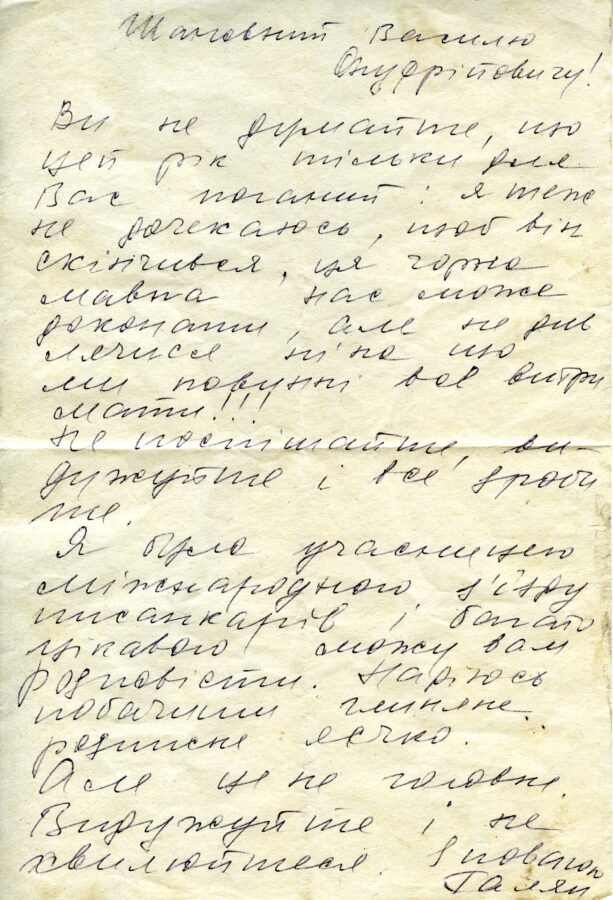 Шановний Василю
Онуфрійовичу!
Ви не думайте, що
цей рік тільки для
Вас поганий: я теж
не дочекаюсь, щоб він
скінчився, ця чорна
мавпа нас може
доконати, але не див
лячися ні на що
ми повинні все витри
мати!!!
Не поспішайте, ви-
дужуйте і все зроби
те.
Я була учасницею
міжнародного з'їзду
писанкарів і багато
цікавого можу вам
розповісти. Надіюсь
побачити глиняне
розписне яєчко.
Але це не головне.
Видужуйте і не
хвилюйтеся. З повагою
Галя